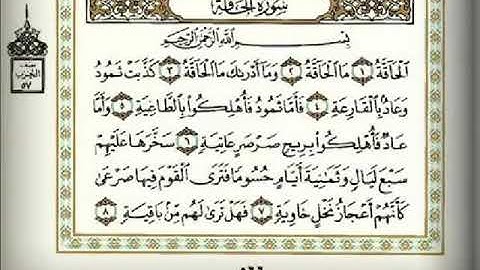 سُورَةُ الْحَاقَّةِ
بِسْمِ اللَّهِ الرَّحْمَٰنِ الرَّحِيمِ
الْحَاقَّةُ ١ مَا الْحَاقَّةُ ٢ وَمَا أَدْرَىٰكَ مَا الْحَاقَّةُ ٣ كَذَّبَتْ ثَمُودُ
وَعَادٌ بِالْقَارِعَةِ ٤ فَأَمَّا ثَمُودُ فَأُهْلِكُوا بِالطَّاغِيَةِ ٥ وَأَمَّا
عَادٌ فَأُهْلِكُوا بِرِيحٍ صَرْصَرٍ عَاتِيَةٍ ٦ سَخَّرَهَا عَلَيْهِمْ
سَبْعَ لَيَالٍ وَثَمَٰنِيَةَ أَيَّامٍ حُسُومًا فَتَرَى الْقَوْمَ فِيهَا صَرْعَىٰ
كَأَنَّهُمْ أَعْجَازُ نَخْلٍ خَاوِيَةٍ ٧ فَهَلْ تَرَىٰ لَهُم مِّنۢ بَاقِيَةٍ ٨
الحزب
٥٧